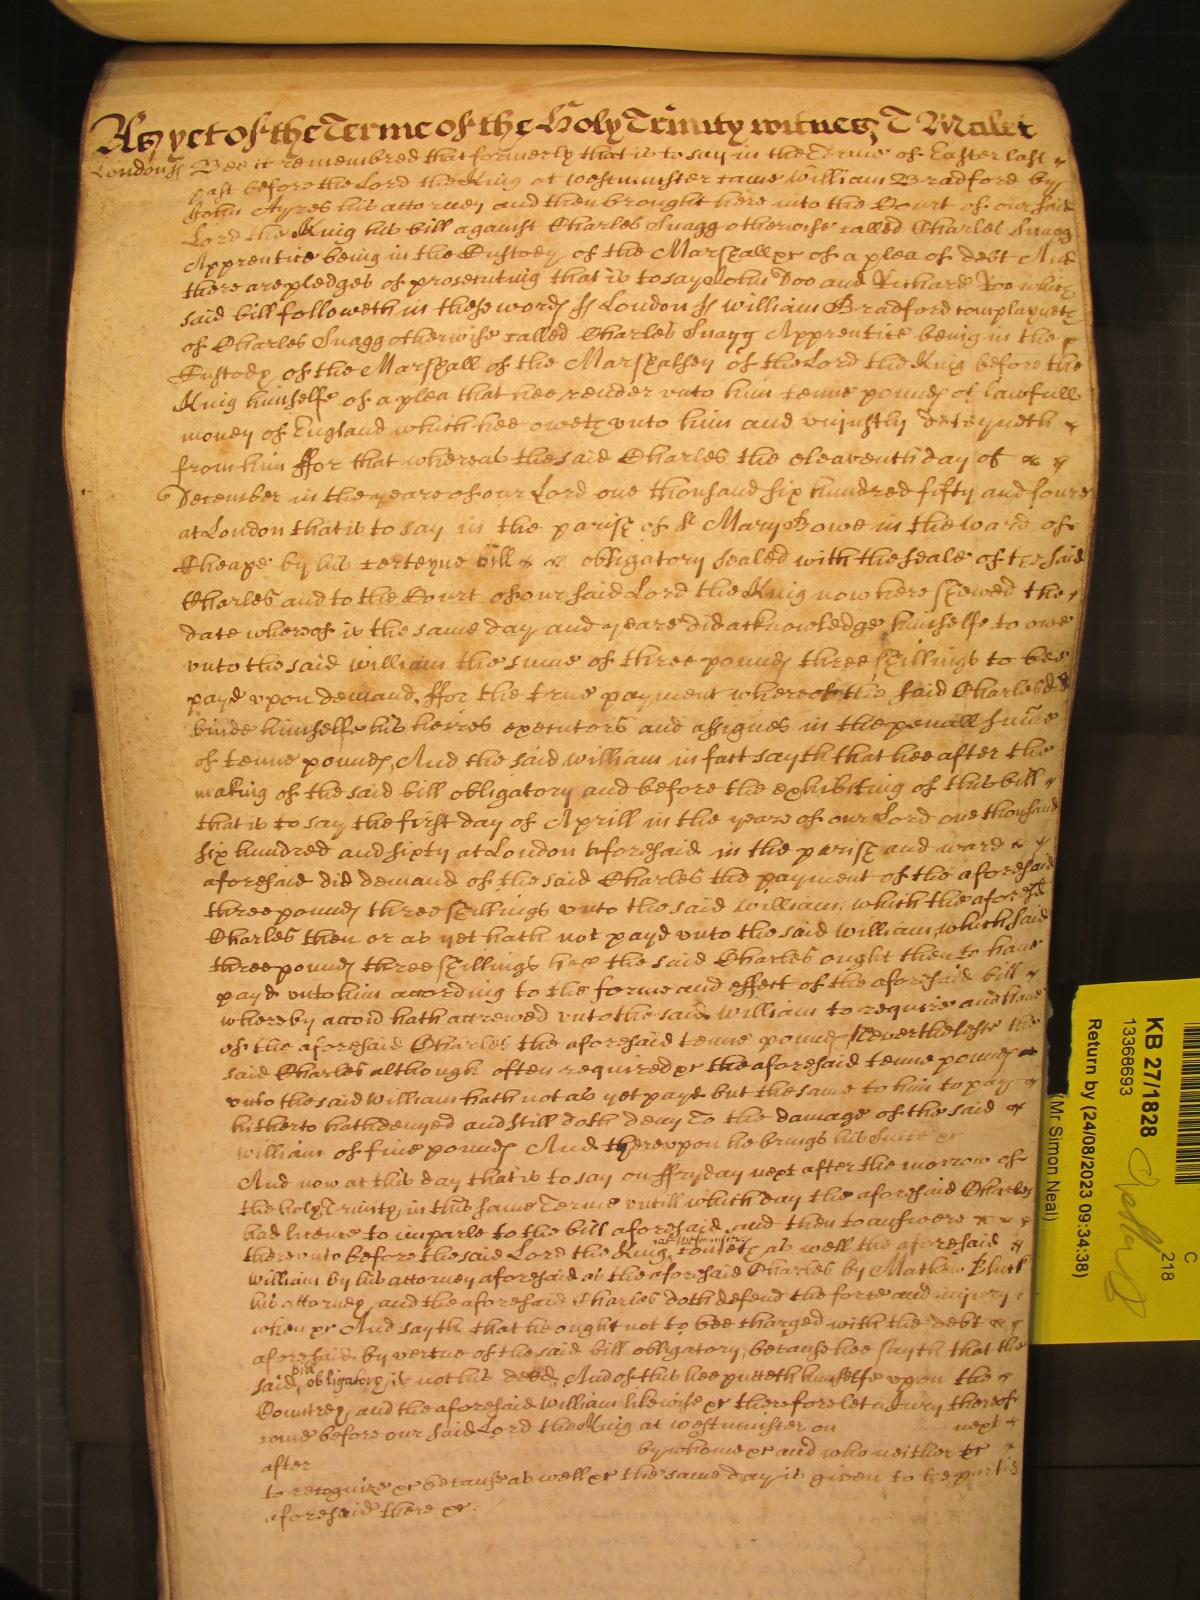 As yet of the Terme of the Holy Trinity witnes T Malet
London ss Bee it remembred that formerly that is to say in the Terme of Easter last
past before the Lord the King at Westminster came William Bradford by
John Ayres his attorney and then brought here into the Court of our said
Lord the King his bill against Charles Snagg otherwise called Charles Snagg
Apprentice being in the Custody of the Marshall &c of a plea of debt And
there are pledges of prosecuting that is to say John Doo and Richard Roo which
said bill followeth in these words ss London ss William Bradford complayneth
of Charles Snagg otherwise called Charles Snagg Apprentice being in the
Custody of the Marshall of the Marshalsey of the Lord the King before the
King himselfe of a plea that hee render unto him tenne pounds of lawfull
money of England which hee oweth unto him and uniustly deteyneth
from him ffor that whereas the said Charles the eleaventh day of
December in the yeare of our Lord one thousand six hundred fifty and foure
at London that is to say in the parish of St Mary Bowe in the ward of
Cheape by his certeyne bill obligatory sealed with the seale of the said
Charles and to the Court of our said Lord the King now here shewed the
date whereof is the same day and yeare did acknowledge himselfe to owe
unto the said William the sume of three pounds three shillings to bee
payd upon demand, ffor the true payment whereof the said Charles did
binde himselfe his heires executors and assignes in the penall sume
of tenne pounds, And the said William in fact sayth that hee after the
making of the said bill obligatory and before the exhibiting of this bill
that is to say the first day of Aprill in the yeare of our Lord one thousand
six hundred and sixty at London aforesaid in the parish and ward
aforesaid did demand of the said Charles the payment of the aforesaid
three pounds three shillings unto the said William, which the aforesd
Charles then or as yet hath not payd unto the said William, which said
three pounds three shillings hee the said Charles ought then to have
payd unto him according to the forme and effect of the aforesaid bill
whereby accord hath accrewed unto the said William to require and have
of the aforesaid Charles the aforesaid tenne pounds Neverthelesse the
said Charles although often required &c the aforesaid tenne pounds
unto the said William hath not as yet payd but the same to him to pay
hitherto hath denyed and still doth deny To the damage of the said
William of five pounds And thereupon he brings his suite &c
And now at this day that is to say on ffryday next after the morrow of
the holy Trinity, in this same Terme untill which day the aforesaid Charles
had licence to imparle to the bill aforesaid, and then to answere
thereunto before the said Lord the King, at Westminster cometh as well the aforesaid
William by his attorney aforesaid as the aforesaid Charles by Mathew Bluck
his attorney, and the aforesaid Charles doth defend the force and iniury
when &c And sayth that he ought not to bee charged with the debt
aforesaid by vertue of the said bill obligatory, because hee sayth that the
said bill obligatory is not his deed, And of this hee putteth himselfe upon the
Countrey, and the aforesaid William likewise &c therefore let a Jury thereof
come before our said Lord the King at Westminster on next
after by whome &c and who neither &c
to recognize &c because as well &c the same day is given to the parties
aforesaid there &c.
KB 27/1828
13368693
Return by (24/08/2023 09:34:38)
(Mr Simon Neal)
C
218